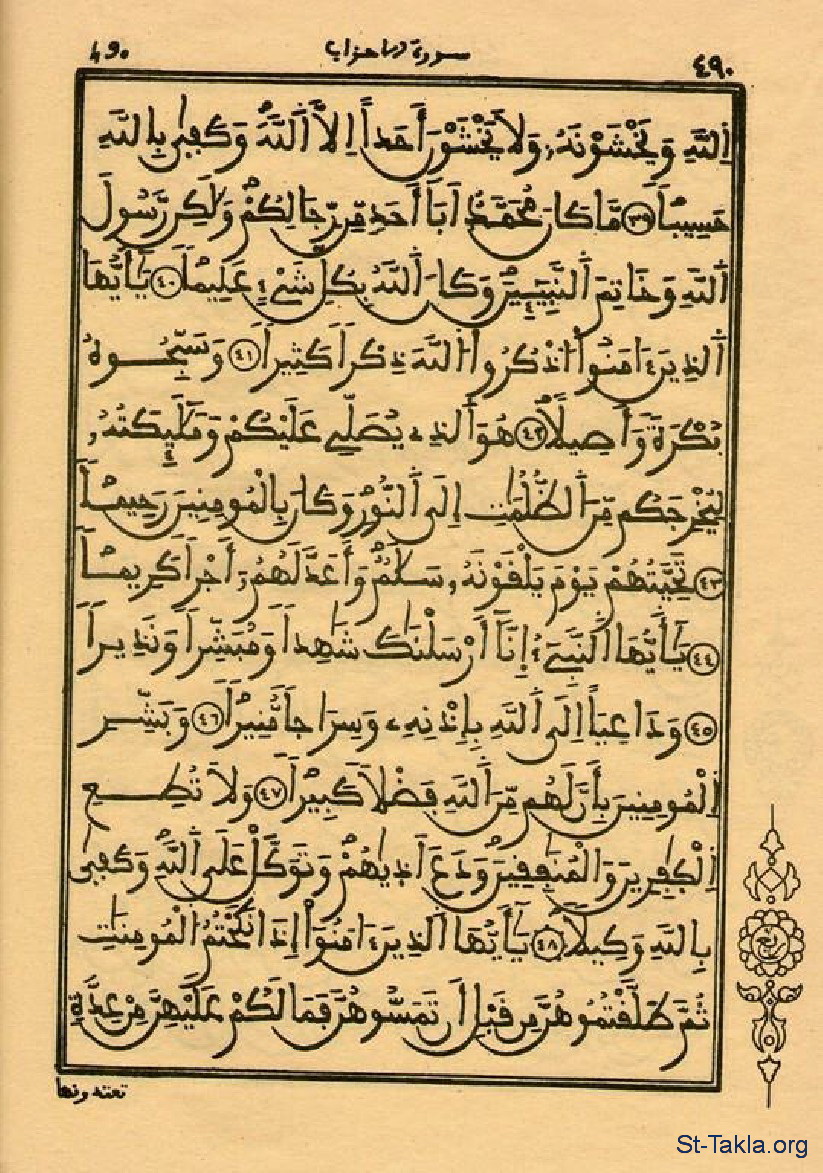 ٤٩٠ سورة الاحزاب 490
اَ۬للَّهِ وَيَخْشَوْنَهُۥ وَلَا يَخْشَوْنَ أَحَداً اِلَّا اَ۬للَّهَۖ وَكَفِىٰ بِاللَّهِ
حَسِيباٗ ٣٩ مَّا كَانَ مُحَمَّدٌ اَبَآ أَحَدٖ مِّن رِّجَالِكُمْ وَلَٰكِن رَّسُولَ
اَ۬للَّهِ وَخَاتِمَ اَ۬لنَّبِيٓـِٕينَۖ وَكَانَ اَ۬للَّهُ بِكُلِّ شَےْءٍ عَلِيماٗ ٤٠ يَٰٓأَيُّهَا
اَ۬لذِينَ ءَامَنُواْ اُ۟ذْكُرُواْ اُ۬للَّهَ ذِكْراٗ كَثِيراٗ ٤١ وَسَبِّحُوهُ
بُكْرَةٗ وَأَصِيلًاۖ ٤٢ هُوَ اَ۬لذِے يُصَلِّے عَلَيْكُمْ وَمَلَٰٓئِكَتُهُۥ
لِيُخْرِجَكُم مِّنَ اَ۬لظُّلُمَٰتِ إِلَى اَ۬لنُّورِۖ وَكَانَ بِالْمُومِنِينَ رَحِيماٗ
٤٣ تَحِيَّتُهُمْ يَوْمَ يَلْقَوْنَهُۥ سَلَٰمٌۖ وَأَعَدَّ لَهُمُۥٓ أَجْراٗ كَرِيماٗ
٤٤ يَٰٓأَيُّهَا اَ۬لنَّبِےٓءُ إِنَّآ أَرْسَلْنَٰكَ شَٰهِداٗ وَمُبَشِّراٗ وَنَذِيراٗ
٤٥ وَدَاعِياً اِلَى اَ۬للَّهِ بِإِذْنِهِۦ وَسِرَاجاٗ مُّنِيراٗۖ ٤٦ وَبَشِّرِ
اِ۬لْمُومِنِينَ بِأَنَّ لَهُم مِّنَ اَ۬للَّهِ فَضْلاٗ كَبِيراٗۖ ٤٧ وَلَا تُطِعِ
اِ۬لْكَٰفِرِينَ وَالْمُنَٰفِقِينَۖ وَدَعَ اَذ۪يٰهُمْۖ وَتَوَكَّلْ عَلَى اَ۬للَّهِۖ وَكَفِىٰ
بِاللَّهِ وَكِيلاٗۖ ٤٨ يَٰٓأَيُّهَا اَ۬لذِينَ ءَامَنُوٓاْ إِذَا نَكَحْتُمُ اُ۬لْمُومِنَٰتِ
ثُمَّ طَلَّقْتُمُوهُنَّ مِن قَبْلِ أَن تَمَسُّوهُنَّ فَمَا لَكُمْ عَلَيْهِنَّ مِنْ عِدَّةٖ
ربع
تعتدونها
St-Takla.org